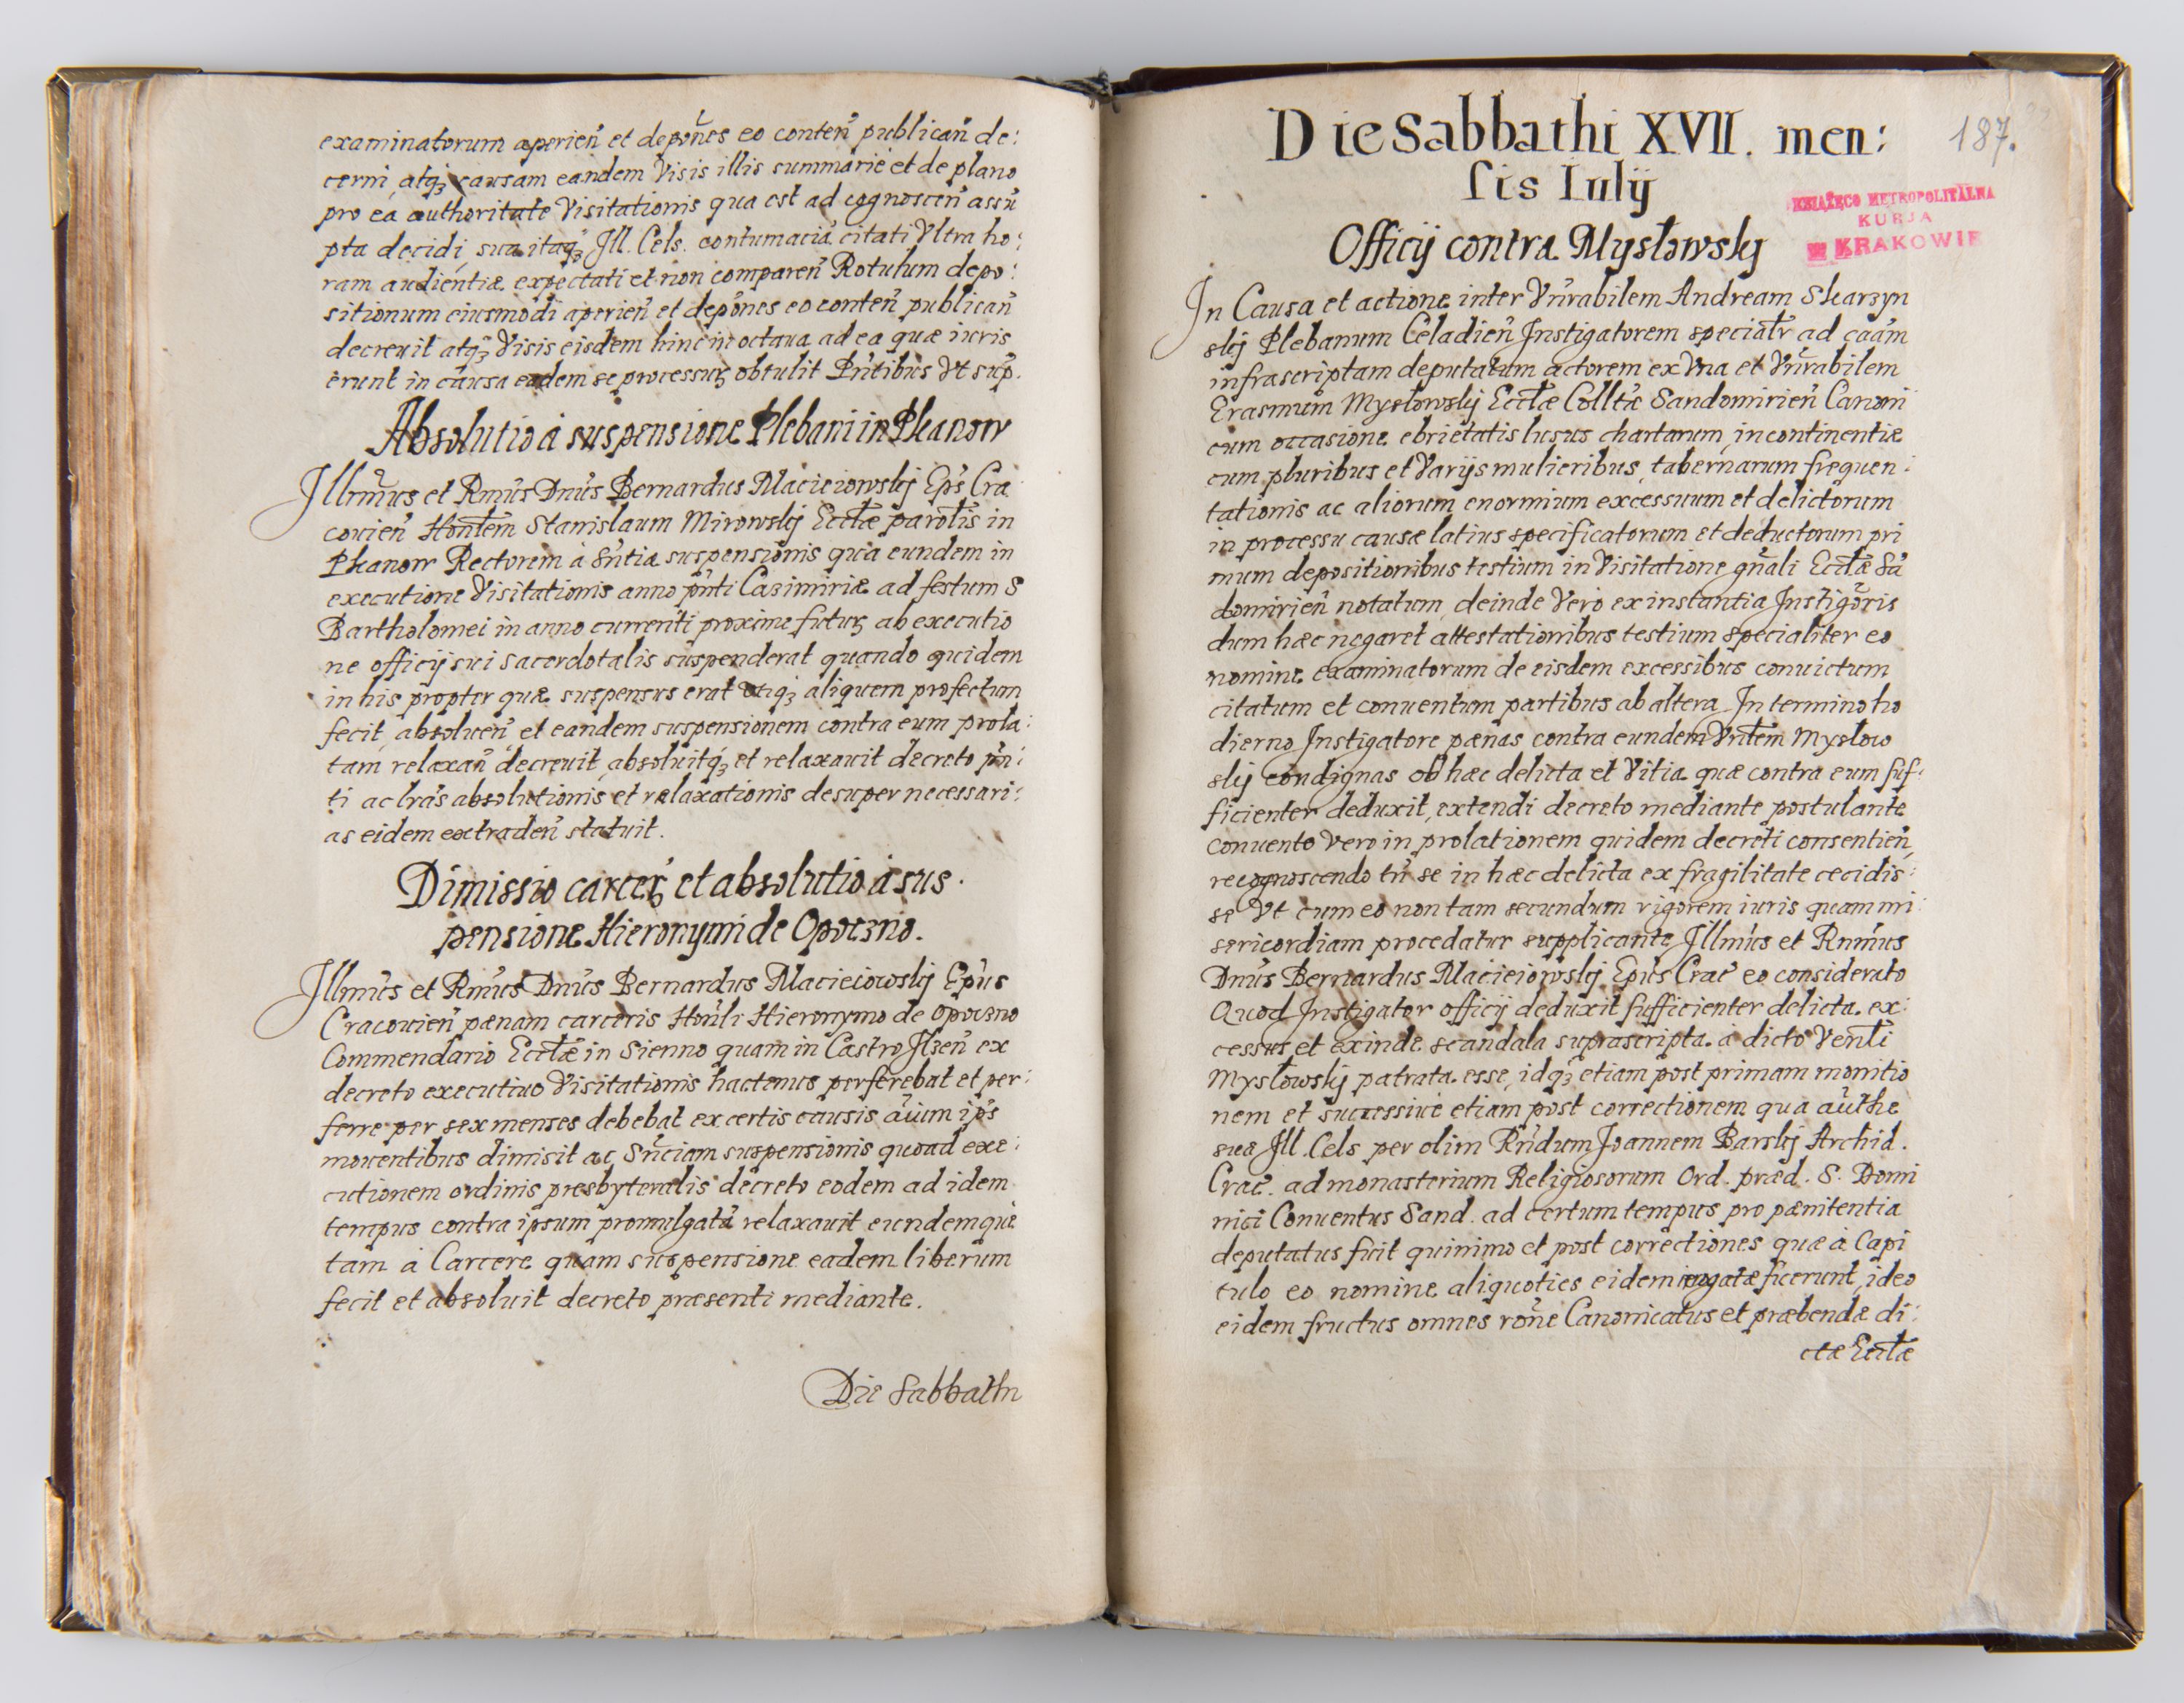 examinatorum aperień et depońes eo conteń publicań de:
cerni atq3 causam eandem Visis illis summarie et de plano
pro ea authoritate Visitationis qua est ad cognosceń assū
pta decidi, sua itaq3 Ill. Cels. contumacia citati Vltra ho:
ram audientiæ expectati et non compareń Rotulum depo:
sitionum eiusmodi aperień et depońes eo conteń publicań
decreuit atq3 Visis eisdem hinc in octaua ad ea quæ iuris
erunt in causa eadem se processur obtulit Pńtibus Vt sup.
Absolutio à suspensione Plebani in Pkanow
Illmus et Rmus Dnus Bernardus Macieiowskij Eps Cra
couień Hontem Stanislaum Mirowskij Ecclæ parotis in
Pkanow Rectorem à Sńtia suspensionis qua eundem in
executione Visitationis anno pńti Casimiriæ ad festum S
Bartholomei in anno currenti proxime futur ab executio
ne officij sui sacerdotalis suspenderat quando quidem
in his propter quæ suspensus erat utiq3 aliquem profectum
fecit, absolueń et eandem suspensionem contra eum prola:
tam relaxań decreuit, absoluitq3 et relaxauit decreto pń:
ti ac lrás absolutionis et relaxationis desuper necessari:
as eidem extradeń statuit.
Dimissio carcer et absolutio à sus.
pensione Hieronymi de Opoczno.
Illmus et Rmus Dnus Bernardus Macieiowskij Epus
Cracouień pænam carceris Honli Hieronymo de Opoczno
Commendario Ecclæ in Sienno quam in Castro Ilzeń ex
decreto executiuo Visitationis hactenus perferebat et per:
ferre per sex menses debebat ex certis causis aium ips
mouentibus dimisit ac Sńciam suspensionis quoad exe:
cutionem ordinis presbyteralis decreto eodem ad idem
tempus contra ipsum promulgatā relaxauit eundemque
tam à Carcere quam suspensione eadem liberum
fecit et absoluit decreto præsenti mediante.
Die Sabbathi
Die Sabbathi XVII. men:
sis Iulij
187.
KSIĄŻĘCO METROPOLITALNA
KURJA
W KRAKOWIE
Officij contra Mysłowskij
In Causa et actione inter Vnrabilem Andream Skarzyn
skij Plebanum Celadień Instigatorem specialr ad caam
infrascriptam deputatum actorem ex Vna et Vnrabilem
Erasmum Mysłowskij Ecclæ Colltæ Sandomirień Canoni
cum occasione ebrietatis lusus chartarum, incontinentiæ
cum pluribus et Varijs mulieribus, tabernarum frequen:
tationis ac aliorum enormium excessuum et delictorum
in processu causæ latius specificatorum et deductorum pri
mum depositionibus testium in Visitatione gńali Ecclæ Sā
domirień notatum, deinde Vero ex instantia Instigoris
dum hæc negaret attestationibus testium specialiter eo
nomine examinatorum de eisdem excessibus conuictum
citatum et conuentum partibus ab altera. In termino ho
dierno Instigatore pænas contra eundem Vntem Mysłow
skij condignas ob hæc delicta et Vitia quæ contra eum suf:
ficienter deduxit, extendi decreto mediante postulante
conuento Vero in prolationem quidem decreti consentień,
recognoscendo tn̄ se in hæc delicta ex fragilitate cecidis:
se Vt cum eo non tam secundum rigorem iuris quam mi:
sericordiam procedatur supplicante, Illmus et Rnmus
Dnus Bernardus Macieiowskij Epus Crac eo considerato
Quod Instigator officij deduxit sufficienter delicta. ex:
cessus et exinde scandala suprascripta. à dicto Venti
Mysłowskij patrata. esse, idq3 etiam post primam monitio
nem et successiue etiam post correctionem qua authe
sua Ill. Cels per olim Rńdum Joannem Barskij Archid.
Crac. ad monasterium Religiosorum Ord. præd. S. Domi
nici Conuentus Sand. ad certum tempus pro pænitentia
deputatus fuit quinimo et post correctiones quæ à Capi
tulo eo nomine aliquoties eidem fuerunt, ideo
eidem fructus omnes rone Canonicatus et præbendæ di:
ctæ Ecclæ